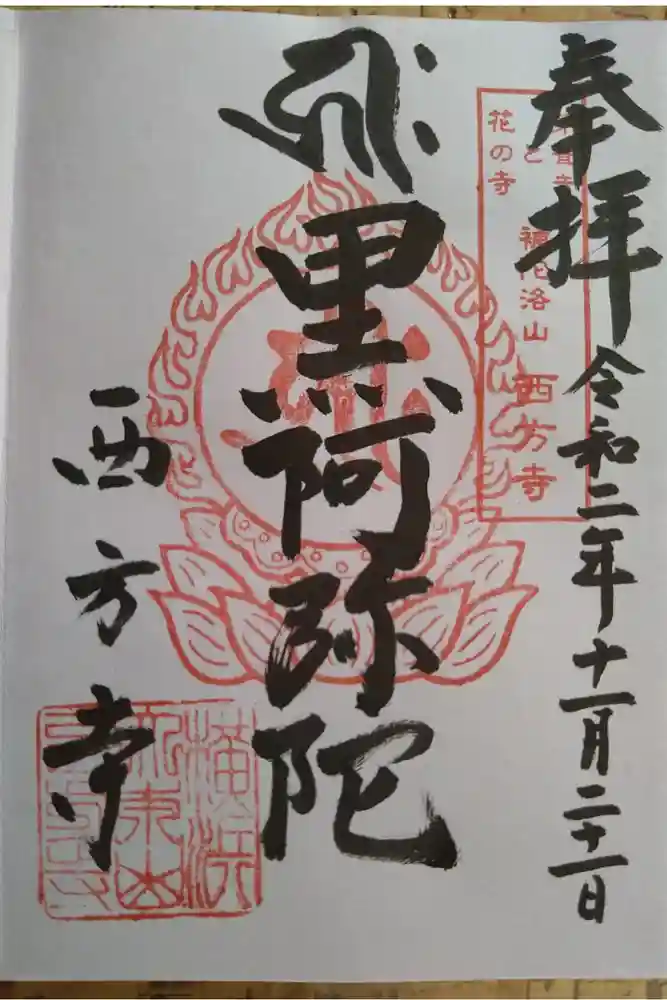 奉拝
令和二年十一月二十一日
と
花の寺
補陀洛山 西方寺
黒阿弥陀
西方寺
横浜